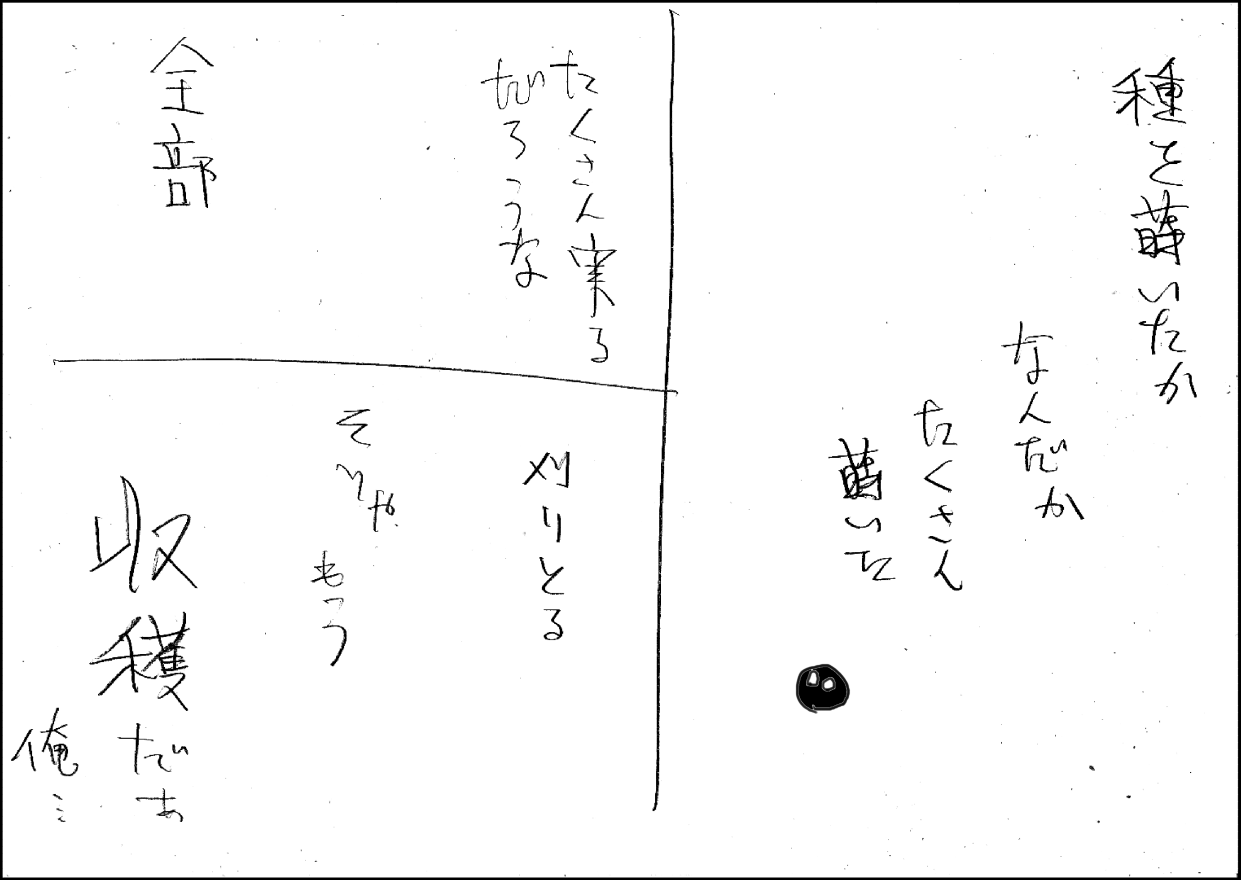 種を蒔いたか
なんだか
たくさん
蒔いた
たくさん実る
だろうな
全部
刈りとる
そりゃ
もう
収穫だぁ
俺…